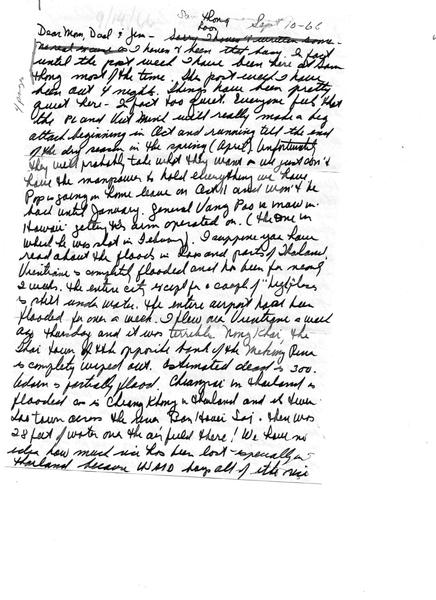 9/14/66
Sam Thong Sept 10-66
Laos
4 pages
Dear Mom, Dad & Jim - Sorry I haven't written some-
I haven't been that busy. In fact
until the past week I have been here at Sam
Thong most of the time. The past week I have
been out 4 nights. Things have been pretty
quiet here - in fact too quiet. Everyone feels that
the PL and Viet Minh will really make a big
attack beginning in Oct and running till the end
of the dry season in the spring (April). Unfortunately
they will probably take what they want as we just don't
have the manpower to hold everything we have
Pop is going on home leave on Oct 11 and won't be
back until January. General Vang Pao is now in
Hawaii getting his arm operated on. (the one in
which he was shot in February). I suppose you have
read about the floods in Laos and parts of Thailand.
Vientiane is completely flooded and has been for nearly
2 weeks. The entire city except for a couple of "highplaces"
is still under water. The entire airport has been
flooded for over a week. I flew over Vientiane a week
ago Thursday and it was terrible. Nong Khai, the
Thai town on the opposite bank of the Mekong River
is completely wiped out. Estimated dead is 300.
Udorn is partially flood. Chiangrai in Thailand is
flooded as is Chiang Khong in Thailand and it's
Lao town across the river Ban Houei Sai. There was
28 feet of water over the air field there! We have no
idea how much rice has been lost - especially in
Thailand because USAID buys all of the rice